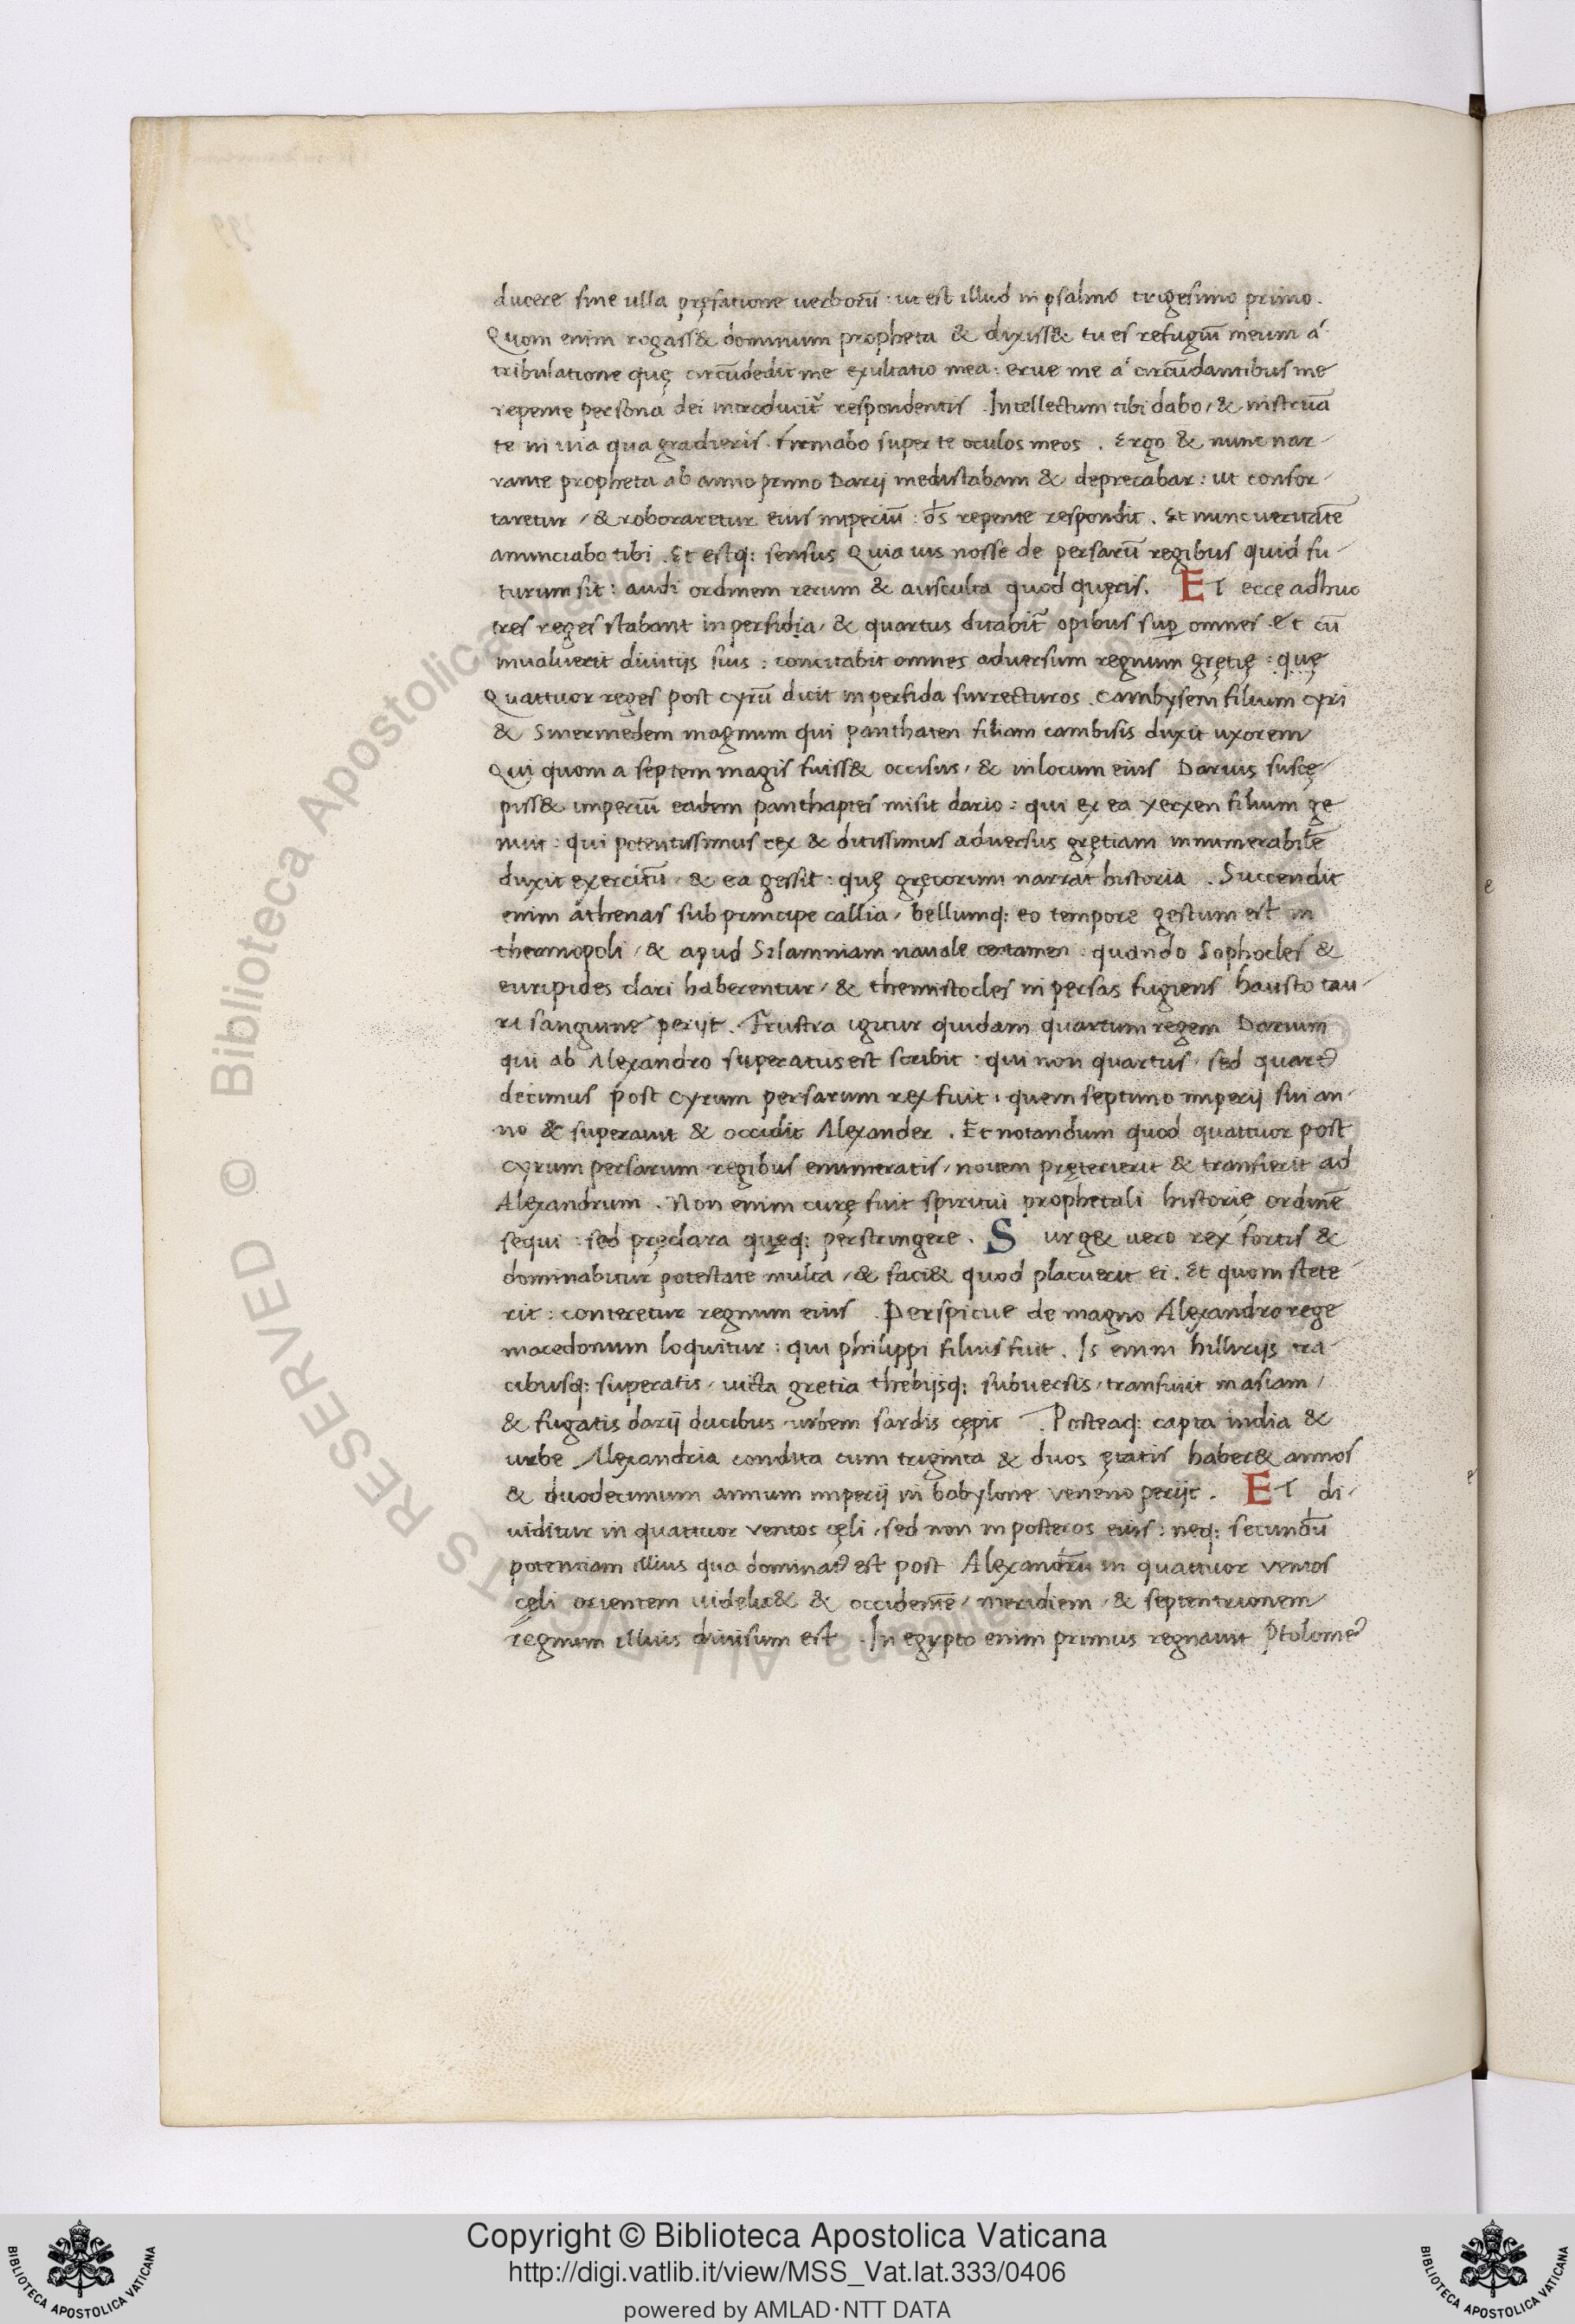 ducere sine ulla pręfatione uerborū : ut est illud in psalmo trigesimo primo .
Quom enim rogass& dominum propheta & dixiss& tu es refugiū meum á
tribulatione quę circūdedit me exultatio mea : erue me á circūdantibus me
repente persona dei introducit̄ respondentis . Intellectum tibi dabo / & instruā
te in uia qua gradieris . firmabo super te oculos meos . Ergo & nunc nar-
rante propheta ab anno primo Darij medi stabam & deprecabar : ut confor-
taretur / & roboraretur eius imperiū : ds̄ repente respondit . Et nunc ueritatē
anunciabo tibi . Et estq: sensus Quia uis nosse de persarū regibus quid fu-
turum sit : audi ordinem rerum & ausculta quod quęris . ET ecce adhuc
tres reges stabant in perfidia / & quartus ditabit̄ opibus suꝑ omnes . Et cū
inualuerit diuitijs suis : concitabit omnes aduersum regnum gręcię : quę
Quattuor reges post cyrū dicit in perfida surrecturos . Cambysem filium cyri
& Smermedem magnum qui panthaten filiam cambisis duxit uxorem
Qui quom a septem magis fuiss& occisus / & in locum eius Darius suscę
piss& imperiū eadem panthaptes misit dario : qui ex ea xerxen filium ge
nuit : qui potentissimus rex & ditissimus aduersus gręciam innumerabilē
duxit exercitū / & ea gessit : quę gręcorum narrat historia . Succendit
enim athenas sub principe callia / bellumq: eo tempore gestum est in
thermopoli / & apud Salamniam nauale certamen : quando Sophocles &
euripides clari haberentur / & themistocles in persas fugiens hausto tau-
ri sanguine perijt . Frustra igitur quidam quartum regem Darium
qui ab Alexandro superatus est scribit : qui non quartus / sed quartꝰ
decimus post Cyrum persarum rex fuit : quem septimo imperij sui an-
no & superauit & occidit Alexander . Et notandum quod quattuor post
cyrum persarum regibus enumeratis / nouem pręterierit & transierit ad
Alexandrum . Non enim curę fuit spiritui prophetali historię ordinē
sequi : sed pręclara quęq: perstringere . Surg& uero rex fortis &
dominabitur potestate multa / & faci& quod placuerit ei . Et quom stete-
rit : conteretur regnum eius . Perspicue de magno Alexandro rege
macedonum loquitur : qui philippi filius fuit . Is enim hillirijs tra-
cibusq: superatis / uicta gretia thebijsq: subuersis / transiuit in asiam /
& fugatis darij ducibus / urbem sardis cępit . Posteaq: capta india &
urbe Alexandria condita cum triginta & duos ętatis haber& annos
& duodecimum annum imperij in babylone veneno perijt . ET di-
uiditur in quattuor ventos cęli / sed non in posteros eius : neq: secundū
potentiam illius qua dominatꝰ est post Alexandrū in quattuor ventos
cęli orientem uidelic& & occidentē / meridiem / & septentrionem
regnum illius diuisum est . In egypto enim primus regnauit Ptolomeꝰ
Copyright © Biblioteca Apostolica Vaticana
http://digi.vatlib.it/view/MSS_Vat.lat.333/0406
powered by AMLAD·NTT DATA